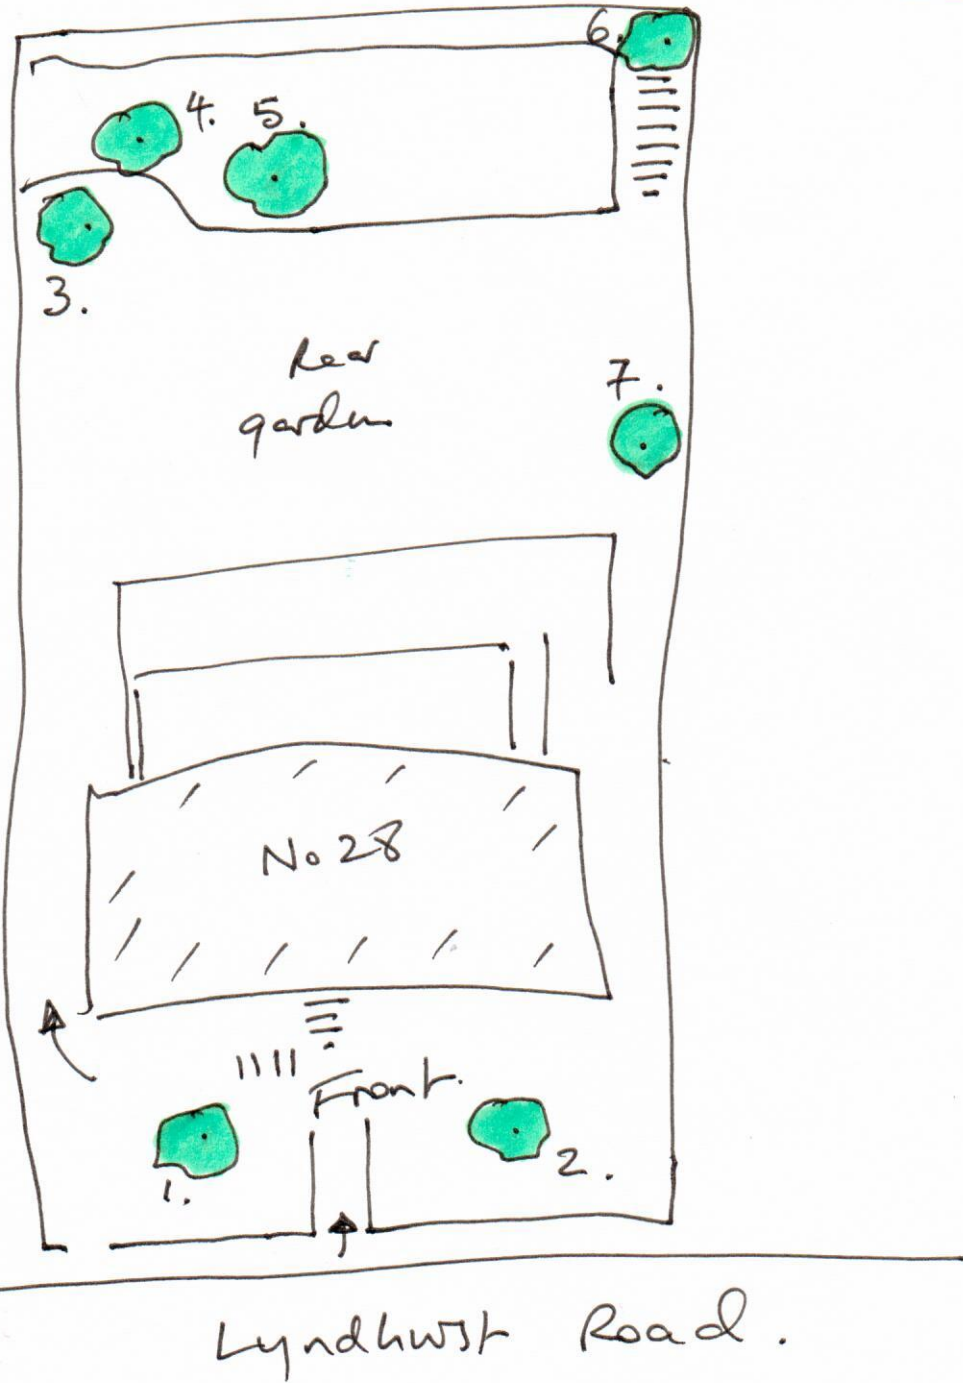 6.
4.
5.
3.
Rear
garden
7.
No 28
Front.
1.
2.
Lyndhurst Road.